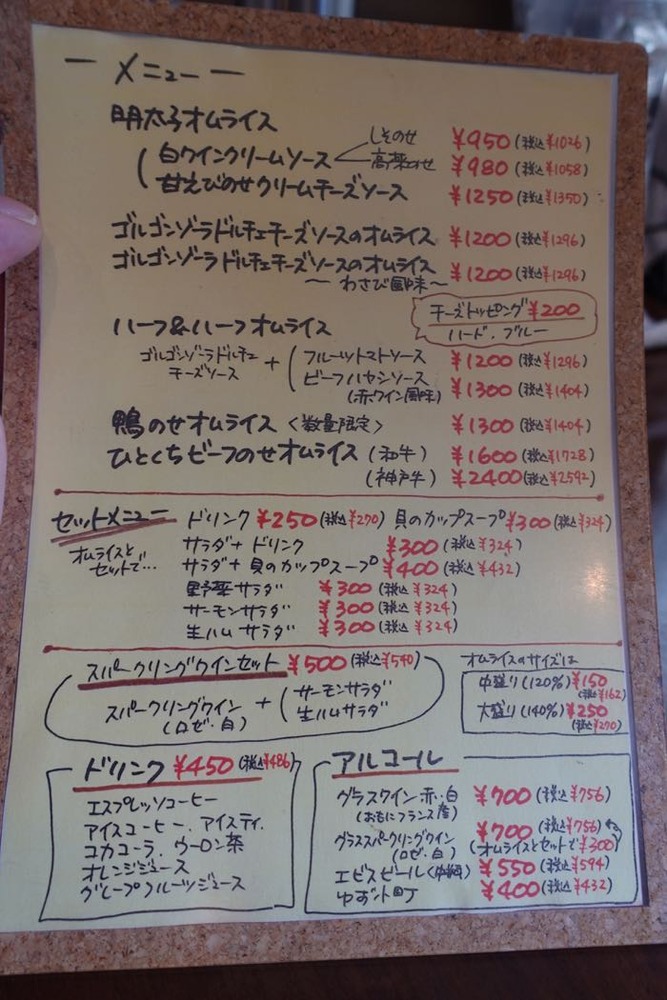 ー メニュー ー
明太子オムライス
白ワインクリームソース しそのせ ¥950(税込¥1026)
高菜のせ ¥980(税込¥1058)
甘えびのせクリームチーズソース ¥1250(税込¥1350)
ゴルゴンゾーラドルチェチーズソースのオムライス ¥1200(税込¥1296)
ゴルゴンゾーラドルチェチーズソースのオムライス
〜わさび風味〜 ¥1200(税込¥1296)
チーズトッピング¥200
ハード・ブルー
ハーフ&ハーフオムライス
ゴルゴンゾーラドルチェ
チーズソース + フルーツトマトソース ¥1200(税込¥1296)
ビーフハヤシソース ¥1300(税込¥1404)
(赤ワイン風味)
鴨のせオムライス〈数量限定〉 ¥1300(税込¥1404)
ひとくちビーフのせオムライス(和牛) ¥1600(税込¥1728)
(神戸牛) ¥2400(税込¥2592)
セットメニュー ドリンク ¥250(税込¥270) 貝のカップスープ¥300(税込¥324)
オムライスと
セットで… サラダ+ドリンク ¥300(税込¥324)
サラダ+貝のカップスープ ¥400(税込¥432)
野菜サラダ ¥300(税込¥324)
サーモンサラダ ¥300(税込¥324)
生ハムサラダ ¥300(税込¥324)
スパークリングワインセット ¥500(税込¥540)
スパークリングワイン + サーモンサラダ
(ロゼ・白) 生ハムサラダ
オムライスのサイズは
中盛り(120%)¥150
(税込¥162)
大盛り(140%)¥250
(税込¥270)
ドリンク ¥450(税込¥486)
エスプレッソコーヒー
アイスコーヒー・アイスティ・
コカコーラ・ウーロン茶
オレンジジュース
グレープフルーツジュース
アルコール
グラスワイン・赤・白 ¥700(税込¥756)
(おもにフランス産)
グラススパークリングワイン ¥700(税込¥756)
(ロゼ・白) (オムライスとセットで¥300)
エビスビール ¥550(税込¥594)
ゆず ¥400(税込¥432)